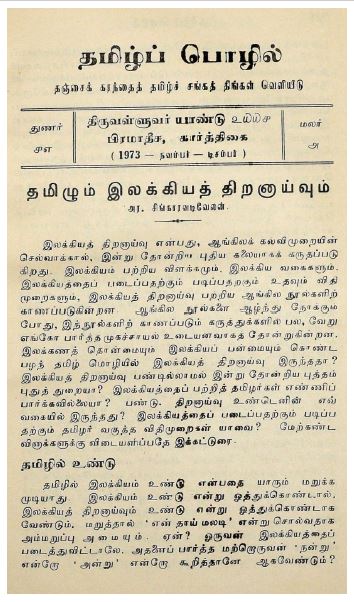 தமிழ்ப் பொழில்
தஞ்சைக் கரந்தைத் தமிழ்ச் சங்கத் திங்கள் வெளியீடு
துணர்
ச௯
திருவள்ளுவர் யாண்டு
பிரமாதீச, கார்த்திகை
( 1973 — நவம்பர் — டிசம்பர் )
மலர்
அ
தமிழும் இலக்கியத் திறனாய்வும்
அர. சிங்காரவடிவேலன்.
இலக்கியத் திறனாய்வு என்பது, ஆங்கிலக் கல்விமுறையின்
செல்வாக்கால், இன்று தோன்றிய புதிய கலையாகக் கருதப்படு
கிறது. இலக்கியம் பற்றிய விளக்கமும், இலக்கிய வகைகளும்,
இலக்கியத்தைப் படைப்பதற்கும் படிப்பதற்கும் உதவும் விதி
முறைகளும், இலக்கியத் திறனாய்வு பற்றிய ஆங்கில நூல்களிற்
காணப்படுகின்றன. ஆங்கில நூல்களை ஆழ்ந்து நோக்கும்
போது, இந்நூல்களிற் காணப்படும் கருத்துக்களில் பல, வேறு
எங்கோ பார்த்த முகச்சாயல் உடையனவாகத் தோன்றுகின்றன.
இலக்கணத் தொன்மையும் இலக்கியப் பன்மையும் கொண்ட
பழந் தமிழ் மொழியில் இலக்கியத் திறனாய்வு இருந்ததா?
இலக்கியத் திறனாய்வு பண்டில்லாமல் இன்று தோன்றிய புத்தம்
புதுத் துறையா? இலக்கியத்தைப் பற்றித் தமிழர்கள் எண்ணிப்
பார்க்கவில்லையா? பண்டு, திறனாய்வு உண்டெனின் எவ்
வகையில் இருந்தது? இலக்கியத்தைப் படைப்பதற்கும் படிப்ப
தற்கும் தமிழர் வகுத்த விதிமுறைகள் யாவை? மேற்கண்ட
வினாக்களுக்கு விடையளிப்பதே இக்கட்டுரை.
தமிழில் உண்டு
தமிழில் இலக்கியம் உண்டு என்பதை யாரும் மறுக்க
முடியாது. இலக்கியம் உண்டு என்று ஒத்துக்கொண்டால்,
இலக்கியத் திறனாய்வும் உண்டு என்று ஒத்துக்கொண்டாக
வேண்டும். மறுத்தால் ‘என் தாய் மலடி’ என்று சொல்வதாக
அம்மறுப்பு அமையும். ஏன்? ஒருவன் இலக்கியத்தைப்
படைத்துவிட்டாலே, அதனைப் பார்த்த மற்றொருவன் ‘நன்று’
என்றோ ‘அன்று’ என்றோ கூறித்தானே ஆகவேண்டும்?